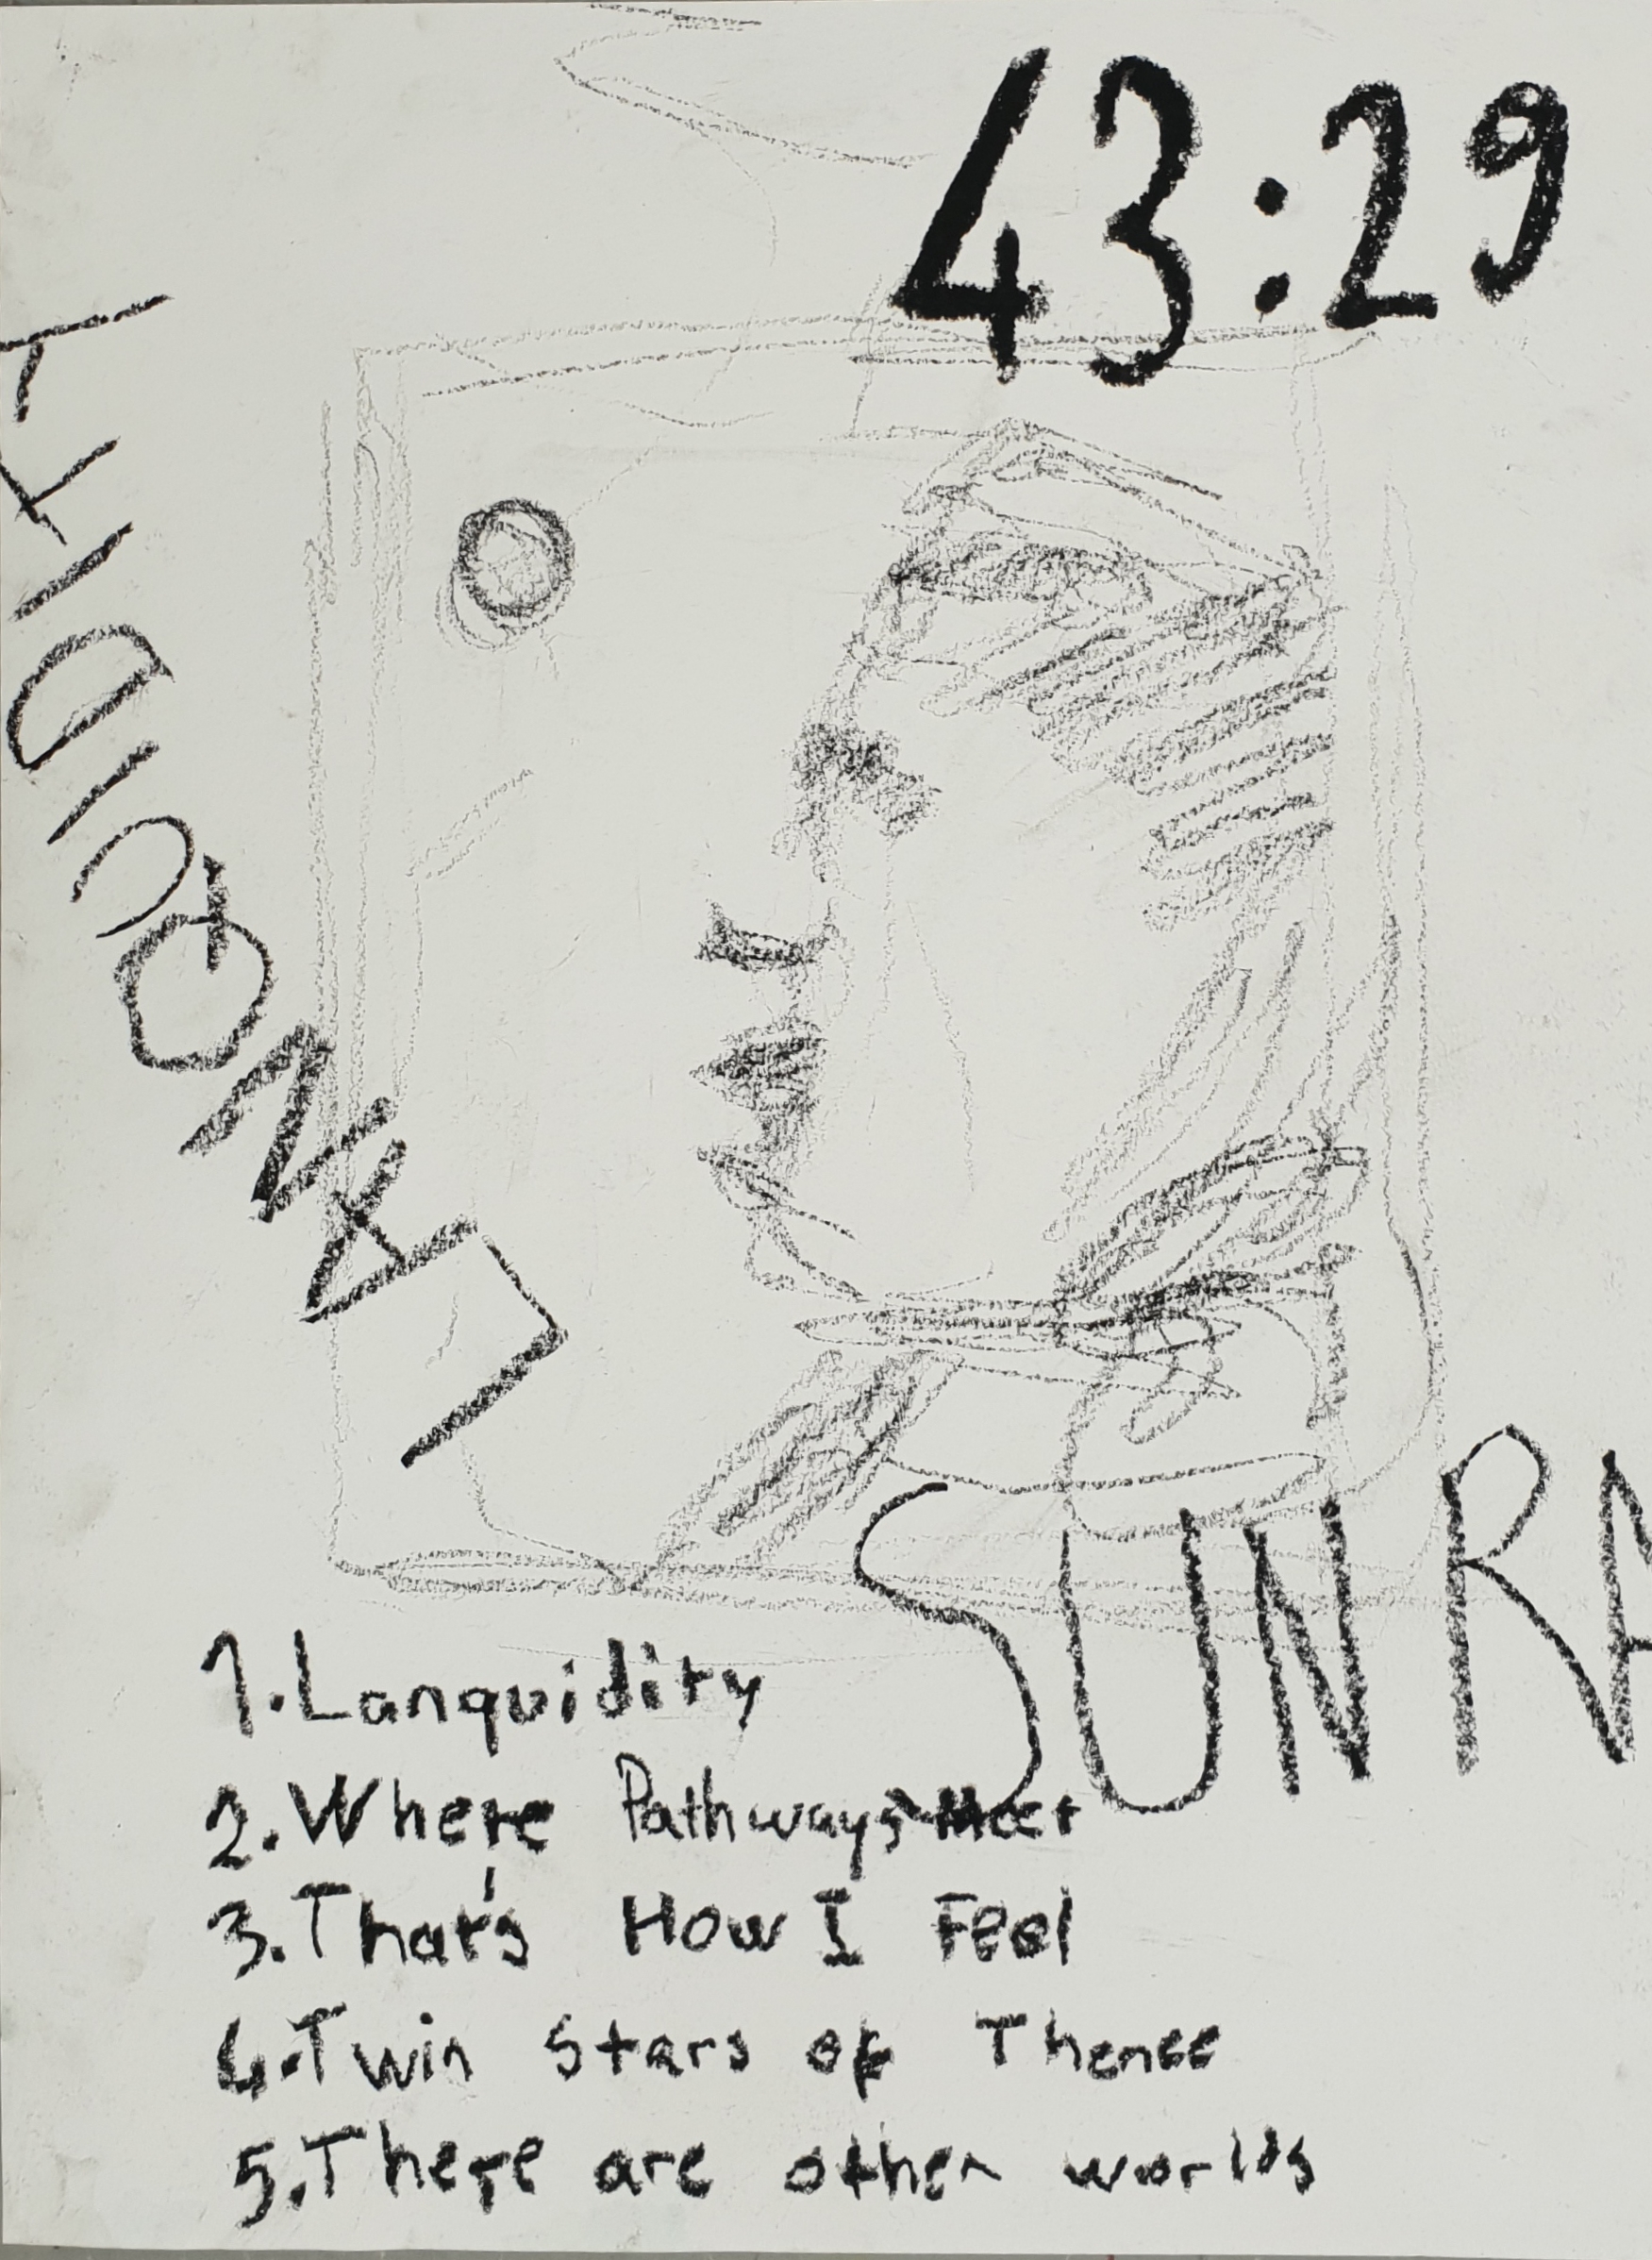 43:29
LANQUIDITY
SUN RA
1. Lanquidity
2. Where Pathways Meet
3. That's How I Feel
4. Twin Stars of Thence
5. There are other worlds